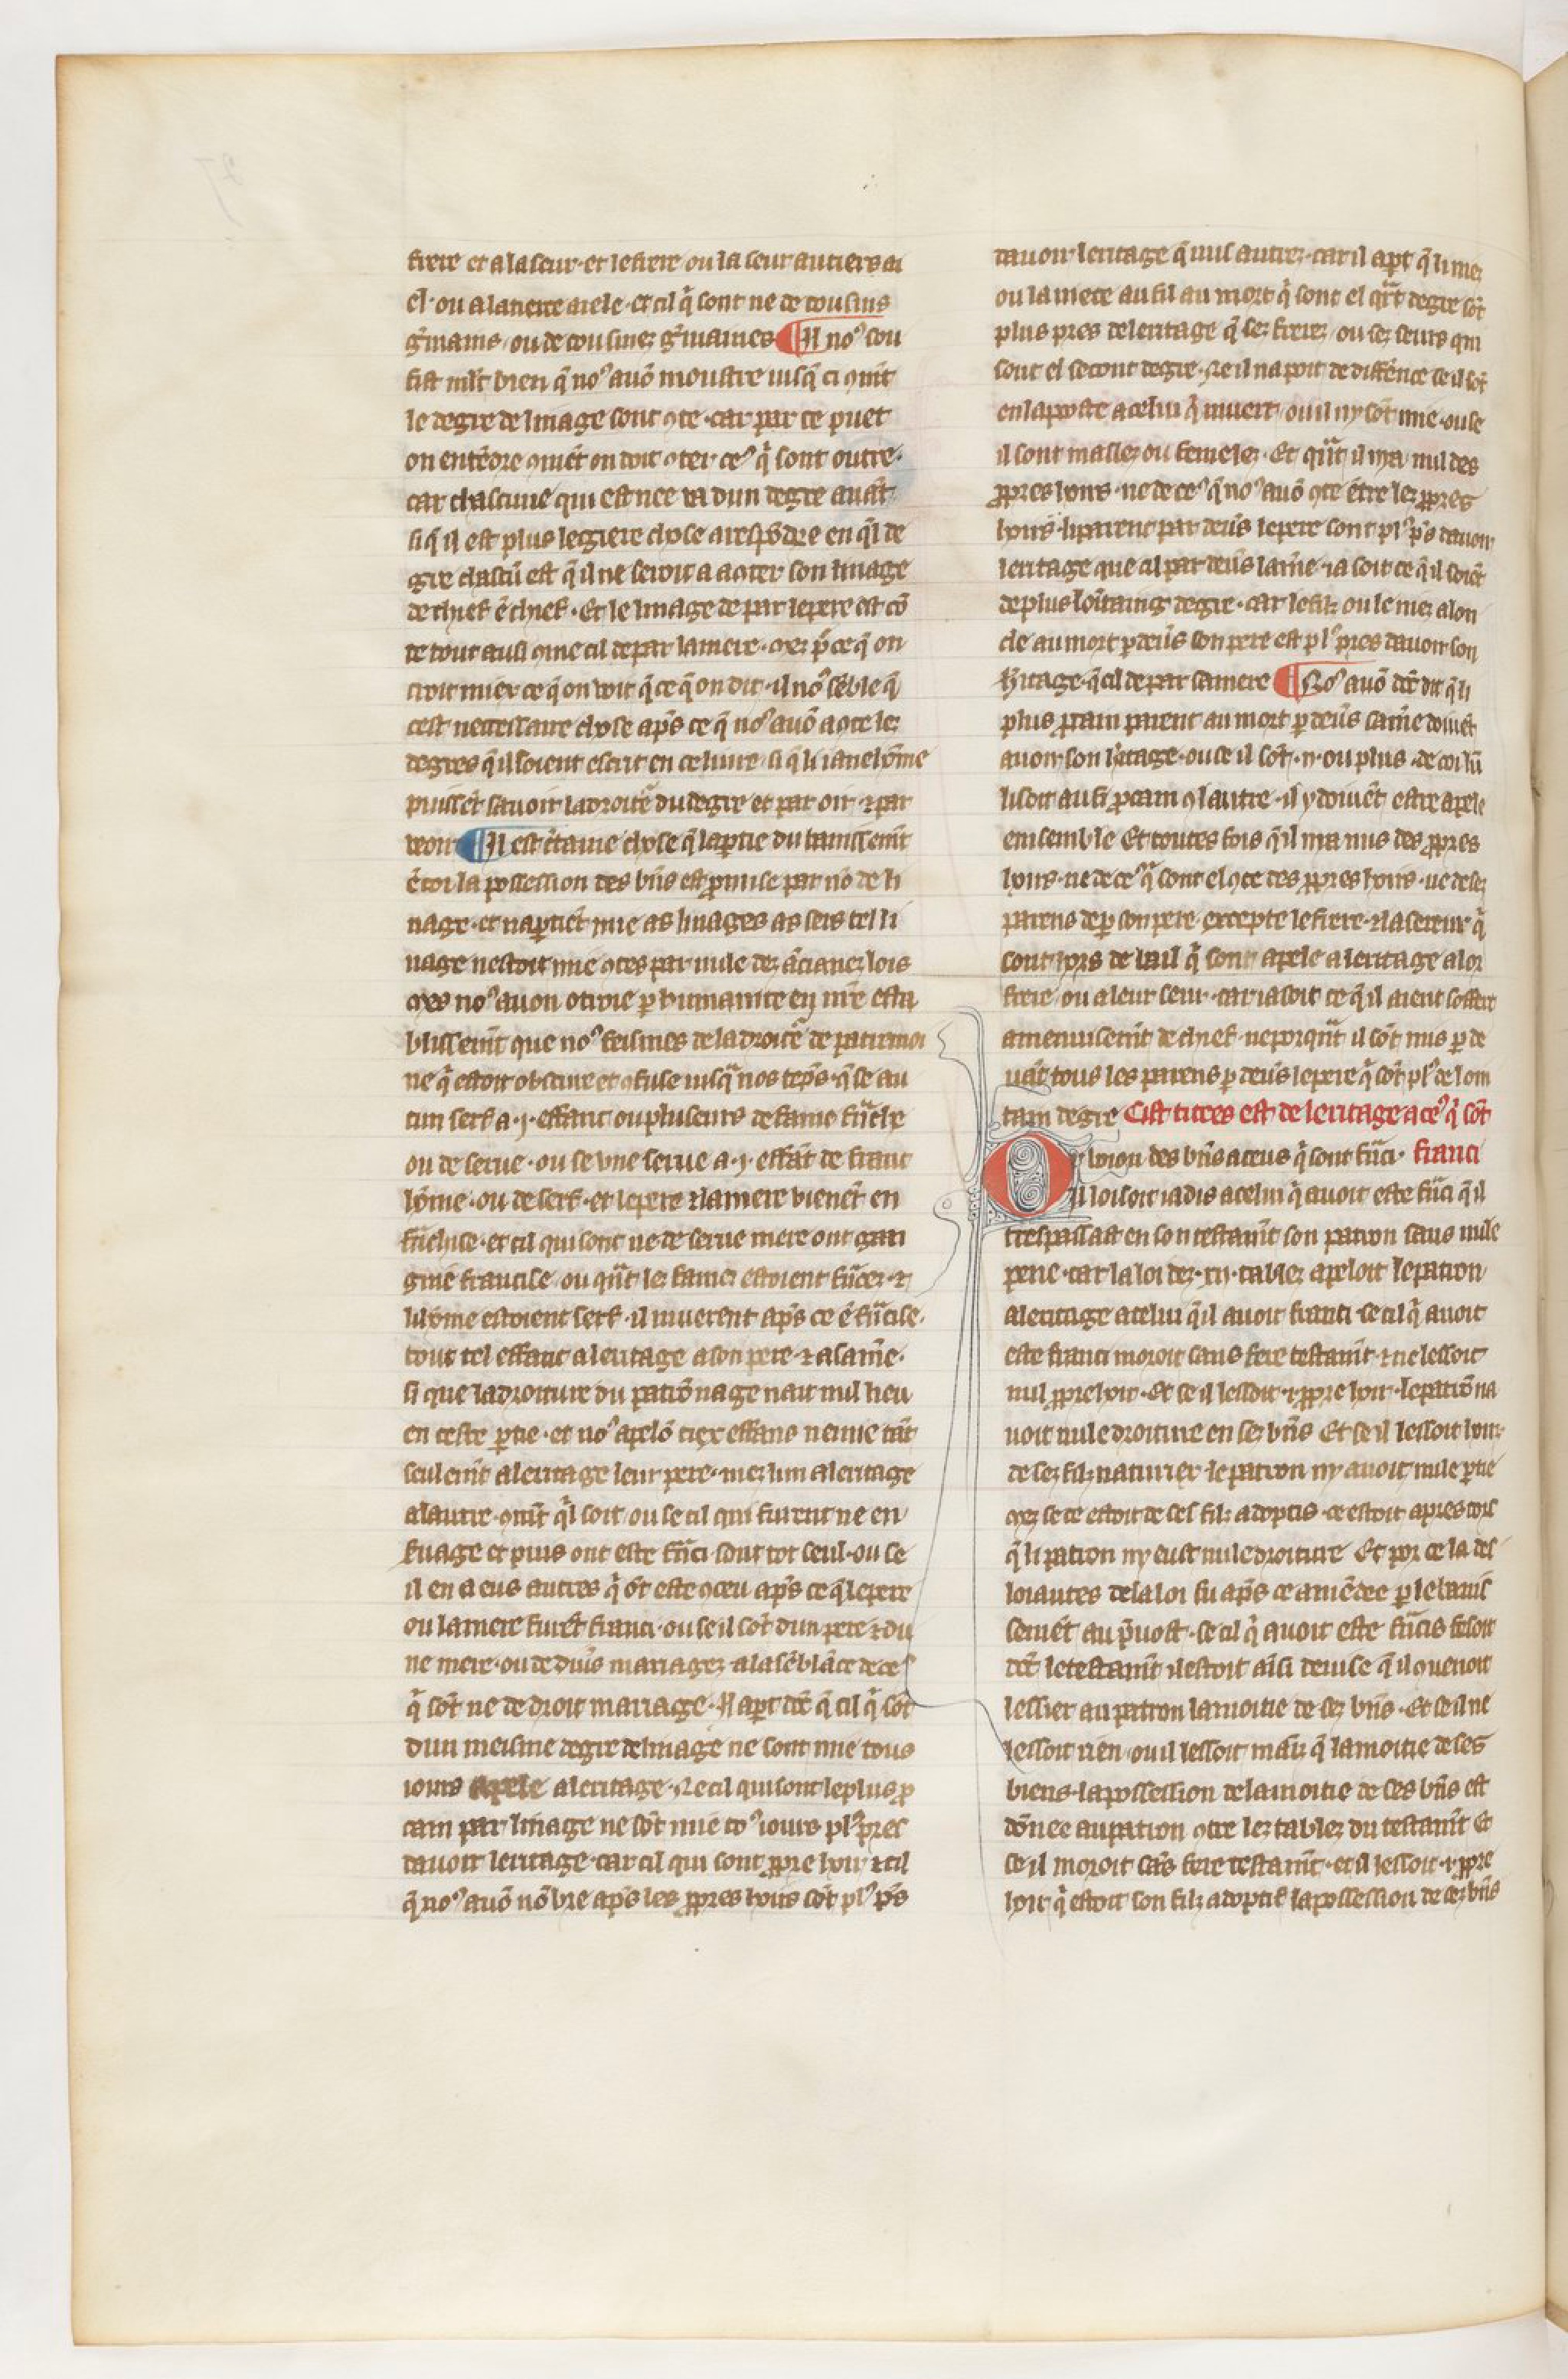 frere et a la seur · et le frere ou la seur au tiers ai
el · ou a la tierce aiele · et cil q̉ sont ne de cousins
g̉mains · ou de cousinez g̉maines ¶ Il noꝰ sou
fist ml̃t bien q̃ noꝰ auõ moustre iusq̃ ci 9mẽt
le degre de linage sont 9te · car par ce puet
on entẽdre 9mẽt on doit 9ter ceꝰ q̉ sont outre ·
car chascune qui est nee va dun degre auãt
si q̃ il est plus legiere chose a respõdre en q̃l de
gre chascũ est q̃ il ne seroit a a9ter son linage
de chief ẽ chief · Et le linage de par le pere est cõ
te tout ausi 9me cil de par la mere · mez p̃ ce q̃ on
croit miex ce q̃ on voit q̃ ce q̃ on dit · il noꝰ sẽble q̃
cest necessaire chose ap̃s ce q̃ noꝰ auõ a9te lez
degres q̃ il soient escrit en ce liure · si q̃ li iane hõme
puissẽt sauoir la droitẽ du degre et par oir · ⁊ par
veoir ¶ Il est c̃taine chose q̃ la ꝑtie du banissemẽt
ẽ coi la possession des bñs est ꝓmise par nõ de li
nage · et naꝑtiẽt mie as linages as sers tel li
nage nestoit mie 9tes par nule dez ãcianez lois
mes noꝰ auon otroie ꝑ humanite en nr̃e esta
blissemẽt que noꝰ feismes de la droitẽ de patremoi
ne q̉ estoit obscure et 9fuse iusq̃ nos tẽps · q̃ se au
cun serf a · j · effant ou pluseurs de fame frãche
ou de serue · ou se vne serue a · j · effãt de franc
hõme · ou de serf · et le pere ⁊ la mere vienẽt en
frãchise · et cil qui sont ne de serue mere ont gaa
gnie francise · ou q̃nt lez famez estoient frãcez · ⁊
li hõme estoient serf · il muerent ap̃s ce ẽ frãcise ·
tout tel effant a leritage a son pere · ⁊ a sa mẽ ·
si que la droiture du patrõnage nait nul lieu
en ceste ꝑtie · et noꝰ apelõ ciex effans ne mie tãt
seulemẽt a leritage leur pere · mez lun a leritage
a lautre · 9mẽt q̃l soit ou se cil qui furent ne en
suage et puis ont este frãci · sont tot seul · ou se
il en a eus autres q̉ õt este 9ceu ap̃s ce q̃ le pere
ou la mere furẽt franci · ou se il sõt dun pere ⁊ du
ne mere · ou de diũs mariagez · a la sẽblãce de ceꝰ
q̉ sõt ne de droit mariage · Il apt dõc q̃ cil q̉ sõt
dun meisme degre de linage ne sont mie tous
iours apele a leritage · Ne cil qui sont le plus ꝓ
cain par linage ne sõt mie toꝰ iours plꝰ pres
dauoir leritage · car cil qui sont ꝓpre hoir ⁊ cil
q̃ noꝰ auõ nõbre ap̃s les ꝓpres hoirs sõt plꝰ p̃s
dauoir leritage q̃ nus autrez · car il apt q̃ li niez
ou la niece au fil au mort q̉ sont el q̃rt degre sõt
plus pres de leritage q̃ sez frerez ou sez seurs qui
sont el secont degre · Ne il na point de diffẽnce se il sõt
en la poste a celui q̉ muert · ou il ny sõt mie · ou se
il sont mallez ou femelez · Et q̃nt il nia nul des
ꝓpres hoirs · ne de ceꝰ q̃ noꝰ auõ 9te ẽtre lez ꝓpres
hoirs · li parent par deũs le pere sont plꝰ p̃s dauoir
leritage que cil par deũs la mẽ · ia soit ce q̃ il soiẽt
de plus lõitaing degre · car le filz ou le niez a lon
cle au mort ꝑ deũs son pere est plꝰ pres dauoir son
h̃itage · q̃ cil de par sa mere ¶ Noꝰ auõ dõc dit q̃ li
plus ꝓcain parent au mort ꝑ deũs sa mẽ doiuẽt
auoir son h̃itage · ou se il sõt · ij · ou plus · de coi lũ
li soit ausi ꝓcain 9 lautre · il y doiuẽt estre apele
ensemble Et toutes fois q̃ il nia nus des ꝓpres
hoirs · ne de ceꝰ q̉ sont el 9te des ꝓpres hoirs · ne de sez
parens de ꝑ son pere · excepte le frere · ⁊ la sereur q̉
sont hors de bail q̉ sont apele a leritage a lor
frere ou a leur seur · car ia soit ce q̃ il aient soffert
amenuisemẽt de chief · neporq̃nt il sõt mis ꝑ de
uãt tous les parens ꝑ deũs le pere q̉ sõt plꝰ de loin
tain degre Cist titres est de leritage a ceꝰ q̉ sõt
Or loion des bñs a ceus q̉ sont frãci · franci
Il loisoit iadis a celui q̉ auoit este frãci q̃ il
trespassast en son testamẽt son patron sans nule
pene · car la loi dez · xij · tablez apeloit le patron
a leritage a celui q̃ il auoit franci · se cil q̉ auoit
este franci moroit sans fere testamẽt · ⁊ ne lessoit
nul ꝓpre hoir · Et se il lessoit · j · ꝓpre hoir · le patrõ na
uoit nule droiture en sez bñs Et se il lessoit hoir
de sez filz naturiex · le patron ny auoit nule ꝑtie
mez se ce estoit de ses filz adoptis · ce estoit apres tors
q̃ li patron ny eust nule droiture Et por ce la des
loiautes de la loi fu ap̃s ce amẽdee ꝑ le banis
semẽt au p̃uost · se cil q̉ auoit este frãcis fesoit
dõc le testamẽt il estoit aĩsi deuise q̃ il 9uenoit
lessier au patron la moitie de sez bñs · Et se il ne
lessoit rien · ou il lessoit mais q̃ la moitie de ses
biens · la possession de la moitie de ses bñs est
dõnee au patron 9tre lez tablez du testamẽt Et
se il moroit sãs fere testamẽt · et il lessoit · j · ꝓpre
hoir q̉ estoit son filz adoptif la possession de sez bñs